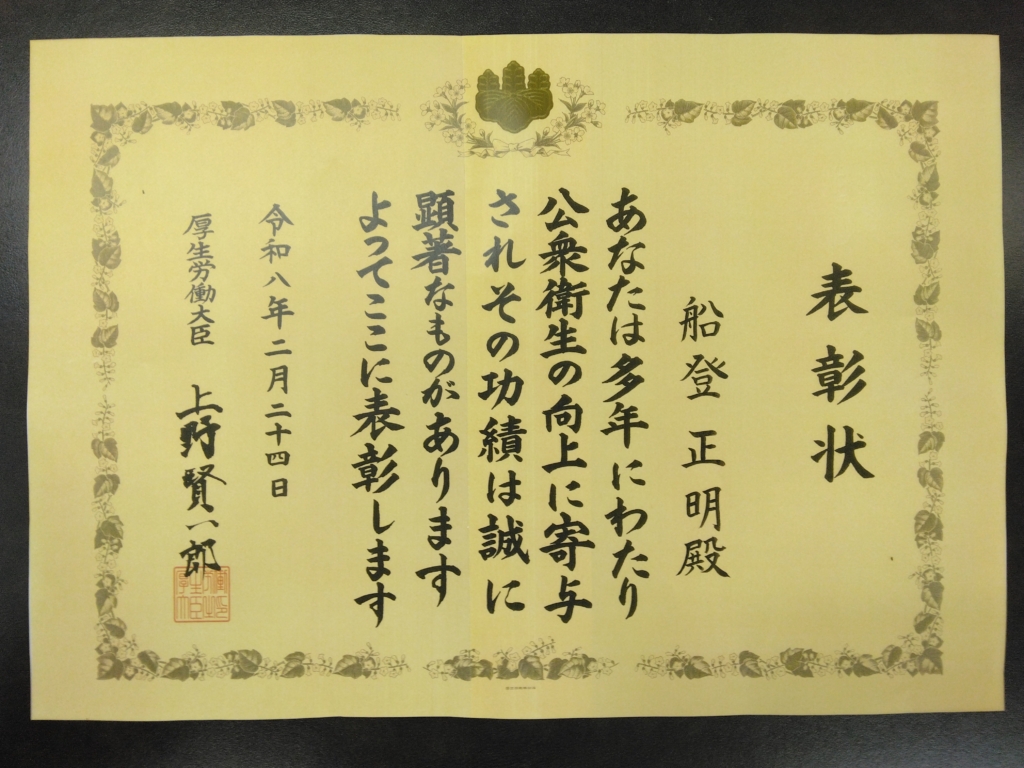 表彰状
船登正明殿
あなたは多年にわたり
公衆衛生の向上に寄与
されその功績は誠に
顕著なものがあります
よってここに表彰します
令和八年二月二十四日
厚生労働大臣 上野賢一郎